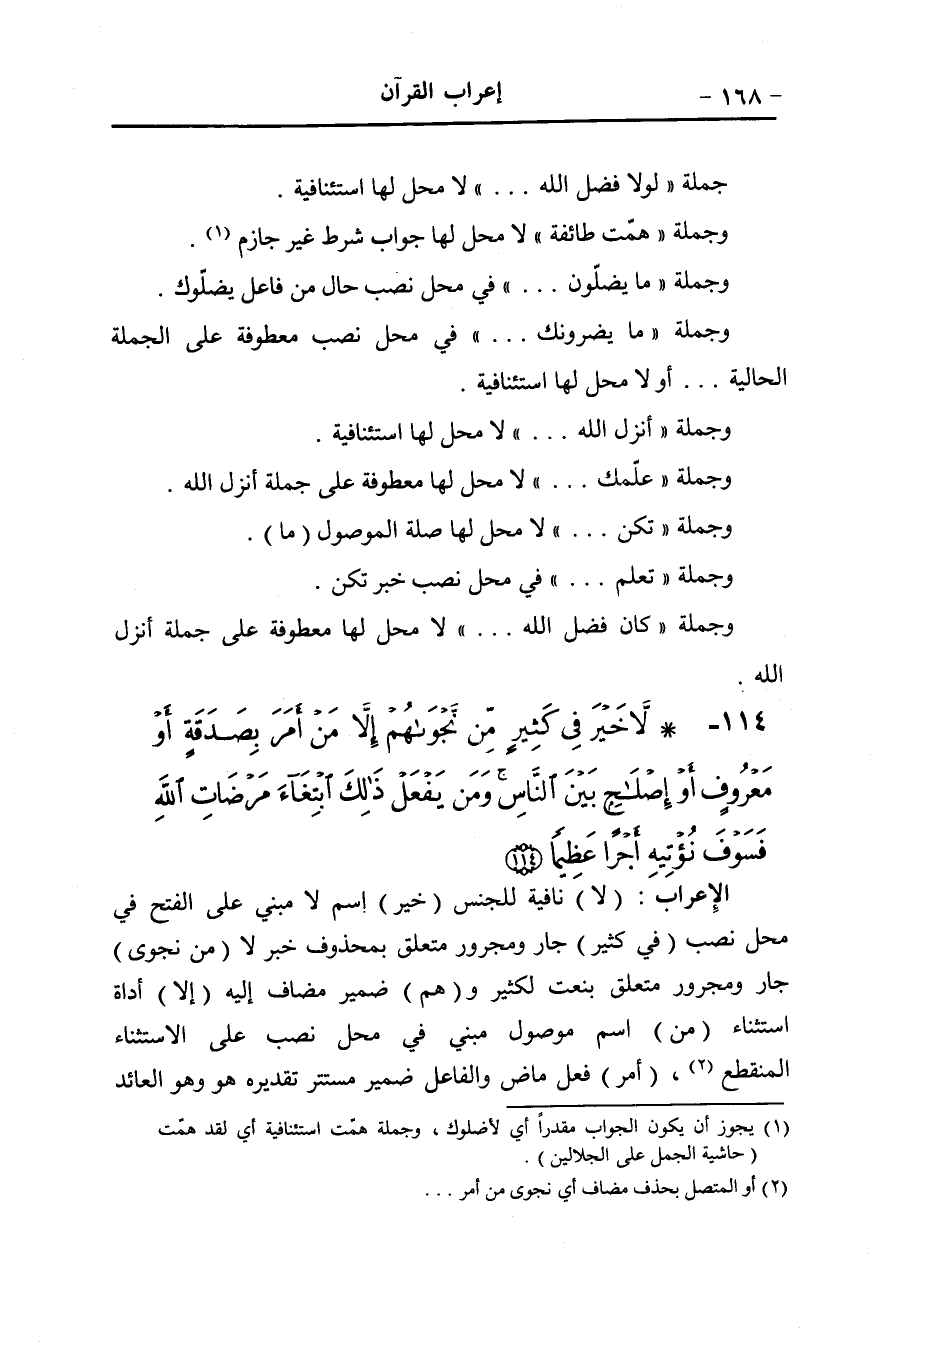 - ١٦٨ - إعراب القرآن
جملة « لولا فضل الله ... » لا محل لها استئنافية .
وجملة « همّت طائفة » لا محل لها جواب شرط غير جازم (١) .
وجملة « ما يضلّون ... » في محل نصب حال من فاعل يضلّوك .
وجملة « ما يضرونك ... » في محل نصب معطوفة على الجملة
الحالية ... أو لا محل لها استئنافية .
وجملة « أنزل الله ... » لا محل لها استئنافية .
وجملة « علّمك ... » لا محل لها معطوفة على جملة أنزل الله .
وجملة « تكن ... » لا محل لها صلة الموصول ( ما ) .
وجملة « تعلم ... » في محل نصب خبر تكن .
وجملة « كان فضل الله ... » لا محل لها معطوفة على جملة أنزل
الله .
١١٤- * لَّا خَيْرَ فِى كَثِيرٍ مِّن نَّجْوَىٰهُمْ إِلَّا مَنْ أَمَرَ بِصَدَقَةٍ أَوْ
مَعْرُوفٍ أَوْ إِصْلَٰحٍۭ بَيْنَ ٱلنَّاسِ ۚ وَمَن يَفْعَلْ ذَٰلِكَ ٱبْتِغَآءَ مَرْضَاتِ ٱللَّهِ
فَسَوْفَ نُؤْتِيهِ أَجْرًا عَظِيمًا ١١٤
الإعراب : ( لا ) نافية للجنس ( خير ) إسم لا مبني على الفتح في
محل نصب ( في كثير ) جار ومجرور متعلق بمحذوف خبر لا ( من نجوى )
جار ومجرور متعلق بنعت لكثير و( هم ) ضمير مضاف إليه ( إلا ) أداة
استثناء ( من ) اسم موصول مبني في محل نصب على الاستثناء
المنقطع (٢) ، ( أمر ) فعل ماض والفاعل ضمير مستتر تقديره هو وهو العائد
(١) يجوز أن يكون الجواب مقدراً أي لأضلوك ، وجملة همّت استئنافية أي لقد همّت
( حاشية الجمل على الجلالين ) .
(٢) أو المتصل بحذف مضاف أي نجوى من أمر ...